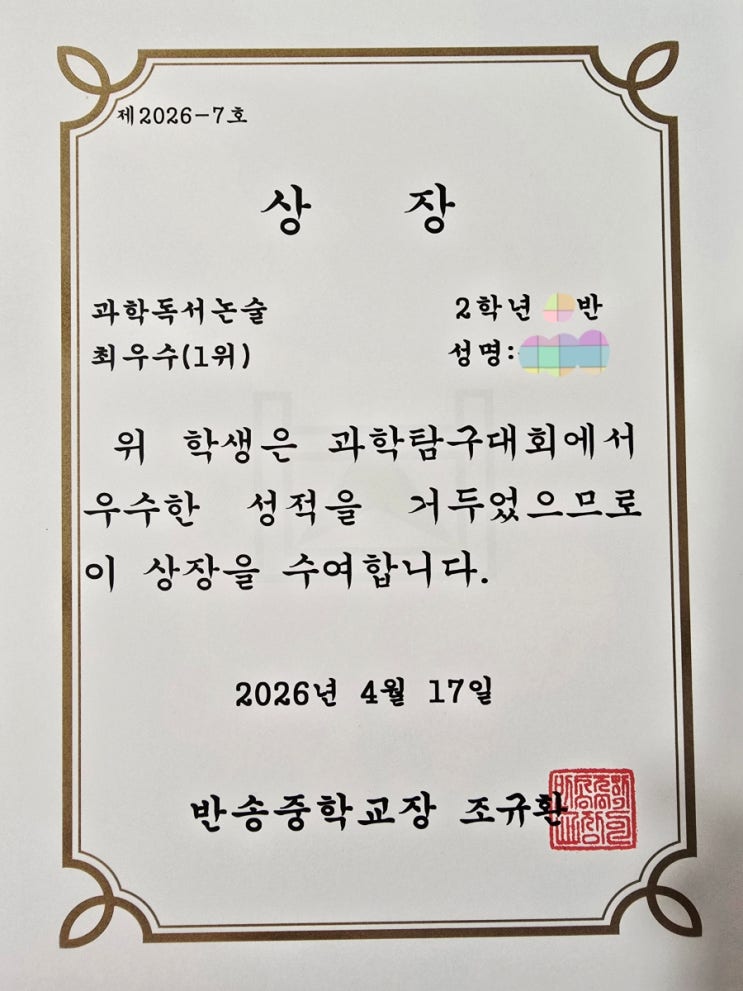 제2026-7호
상 장
과학독서논술 2학년 반
최우수(1위) 성명:
위 학생은 과학탐구대회에서
우수한 성적을 거두었으므로
이 상장을 수여합니다.
2026년 4월 17일
반송중학교장 조규환